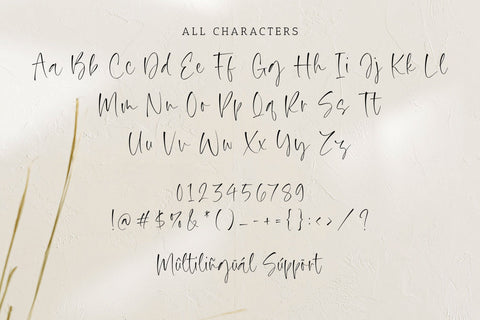 ALL CHARACTERS
Aa Bb Cc Dd Ee Ff Gg Hh Ii Jj Kk Ll
Mm Nn Oo Pp Qq Rr Ss Tt
Uu Vv Ww Xx Yy Zz
0123456789
!@#$%&*()_-+={}:<>/?
Múltilingüál Súppórt